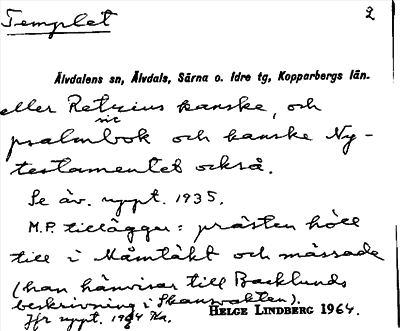 Templet
2
Älvdalens sn, Älvdals, Särna o. Idre tg, Kopparbergs län.
eller Retzius kanske, och
sic
psalmbok och kanske Ny-
testamentet också.
Se äv. uppt. 1935.
M.P. tillägger: prästen höll
till i Måmtäkt och mässade
(han hänvisar till Backlunds
beskrivning i Skansvakten).
Jfr uppt.
HELGE LINDBERG 1964.